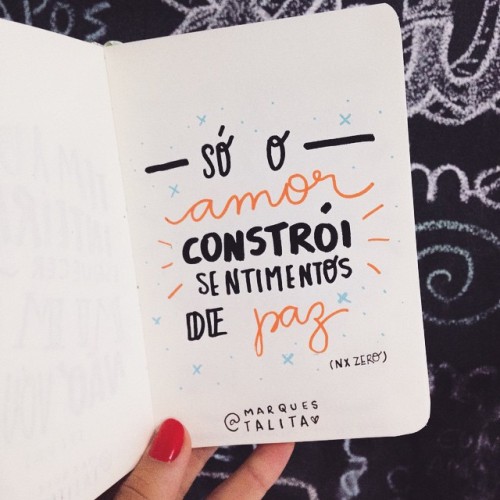 SÓ O
amor
CONSTRÓI
SENTIMENTOS
DE paz
(NX ZERO)
@MARQUES
TALITA